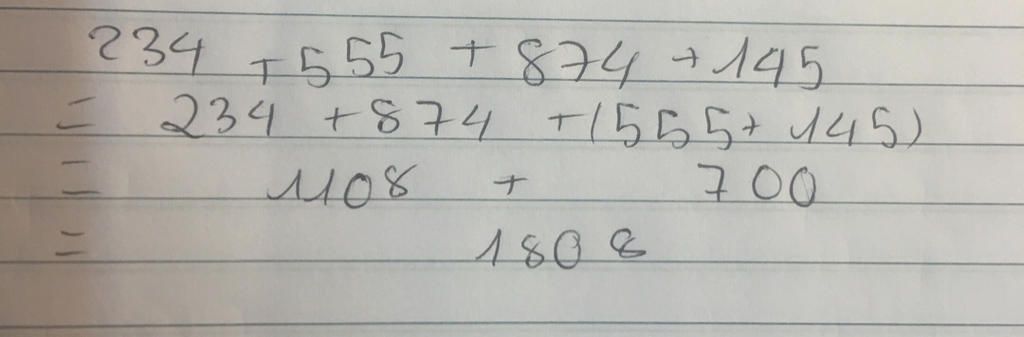 234 + 555 + 874 + 145
= 234 + 874 + (555 + 145)
= 1108 + 700
= 1808